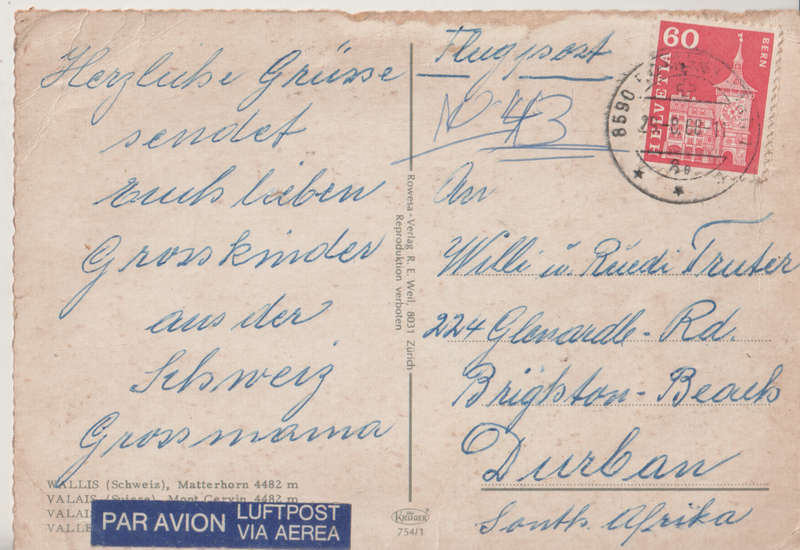 Herzliche Grüsse
sendet
Euch lieben
Grosskinder
aus der
Schweiz
Grossmama
WALLIS (Schweiz), Matterhorn 4482 m
VALAIS (Suisse), Mont Cervin 4482 m
VALAIS
VALLE
PAR AVION LUFTPOST
VIA AEREA
Rowesa-Verlag R. E. Weil, 8031 Zürich
Reproduktion verboten
KRÜGER
754/1
Flugpost
No 43
60
HELVETIA
BERN
8590
An
Willi u. Ruedi Truter
224 Glenardle-Rd.
Brighton-Beach
Durban
South Afrika